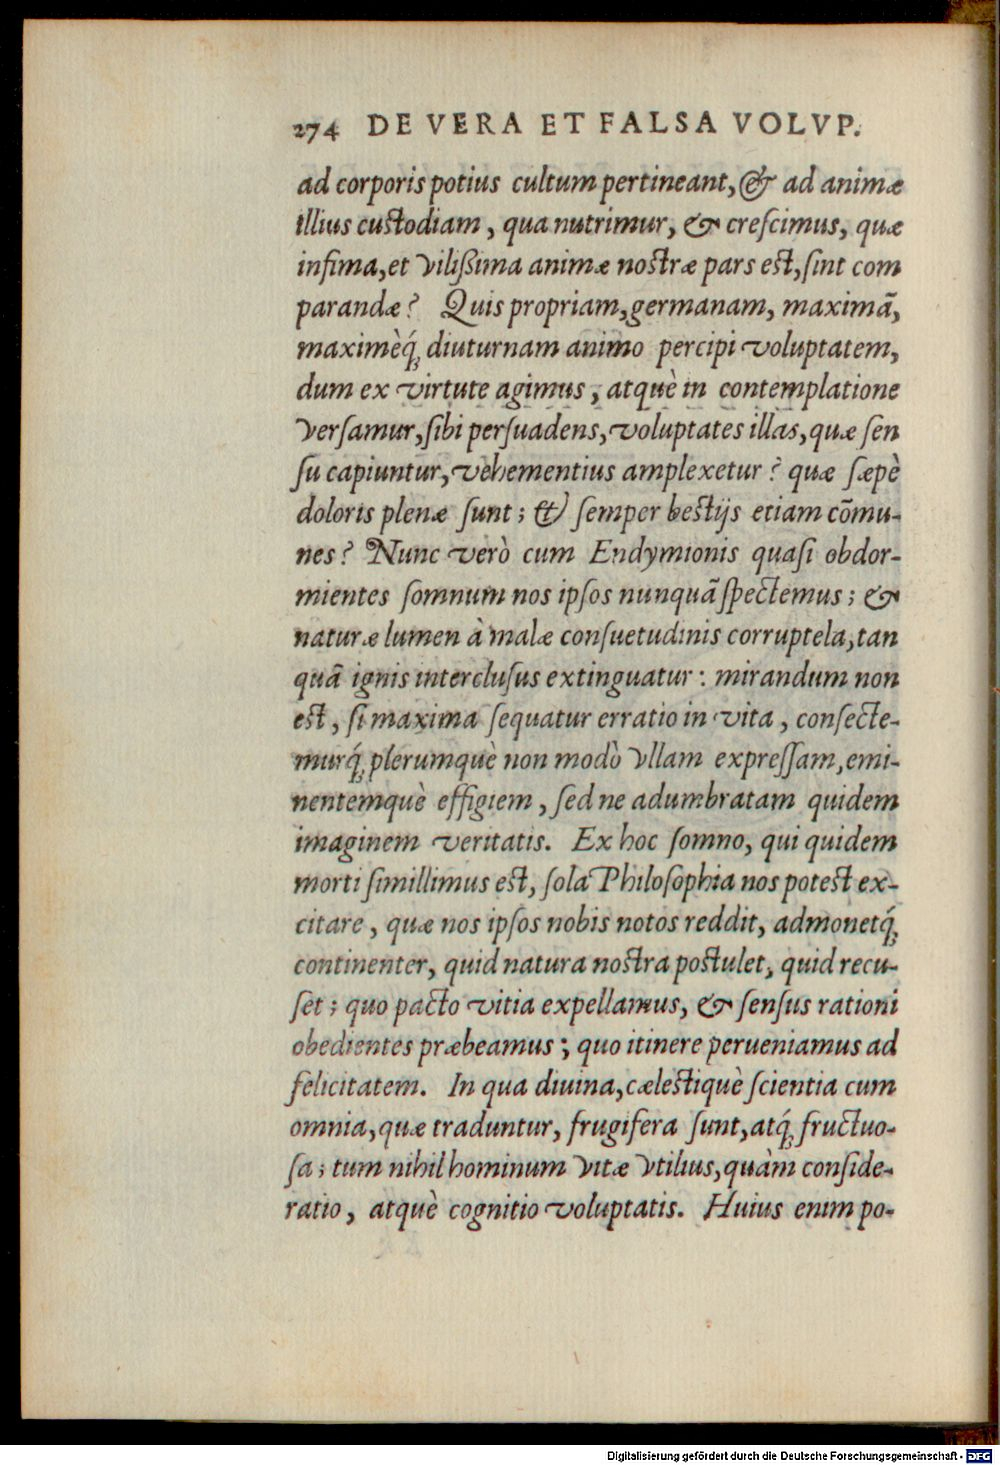 274 DE VERA ET FALSA VOLVP.
ad corporis potius cultum pertineant, & ad animæ
illius custodiam, qua nutrimur, & crescimus, quæ
infima, et vilißima animæ nostræ pars est, sint com
parandæ? Quis propriam, germanam, maximã,
maximèq́; diuturnam animo percipi voluptatem,
dum ex virtute agimus, atquè in contemplatione
versamur, sibi persuadens, voluptates illas, quæ sen
su capiuntur, vehementius amplexetur? quæ sæpè
doloris plenæ sunt; & semper bestijs etiam cõmu-
nes? Nunc verò cum Endymionis quasi obdor-
mientes somnum nos ipsos nunquã spectemus; &
naturæ lumen à malæ consuetudinis corruptela, tan
quã ignis interclusus extinguatur: mirandum non
est, si maxima sequatur erratio in vita, consecte-
murq́; plerumquè non modò vllam expressam, emi-
nentemquè effigiem, sed ne adumbratam quidem
imaginem veritatis. Ex hoc somno, qui quidem
morti simillimus est, sola Philosophia nos potest ex-
citare, quæ nos ipsos nobis notos reddit, admonetq́;
continenter, quid natura nostra postulet, quid recu-
set; quo pacto vitia expellamus, & sensus rationi
obedientes præbeamus; quo itinere perueniamus ad
felicitatem. In qua diuina, cælestiquè scientia cum
omnia, quæ traduntur, frugifera sunt, atq́; fructuo-
sa; tum nihil hominum vitæ vtilius, quàm conside-
ratio, atquè cognitio voluptatis. Huius enim po-
Digitalisierung gefördert durch die Deutsche Forschungsgemeinschaft - DFG